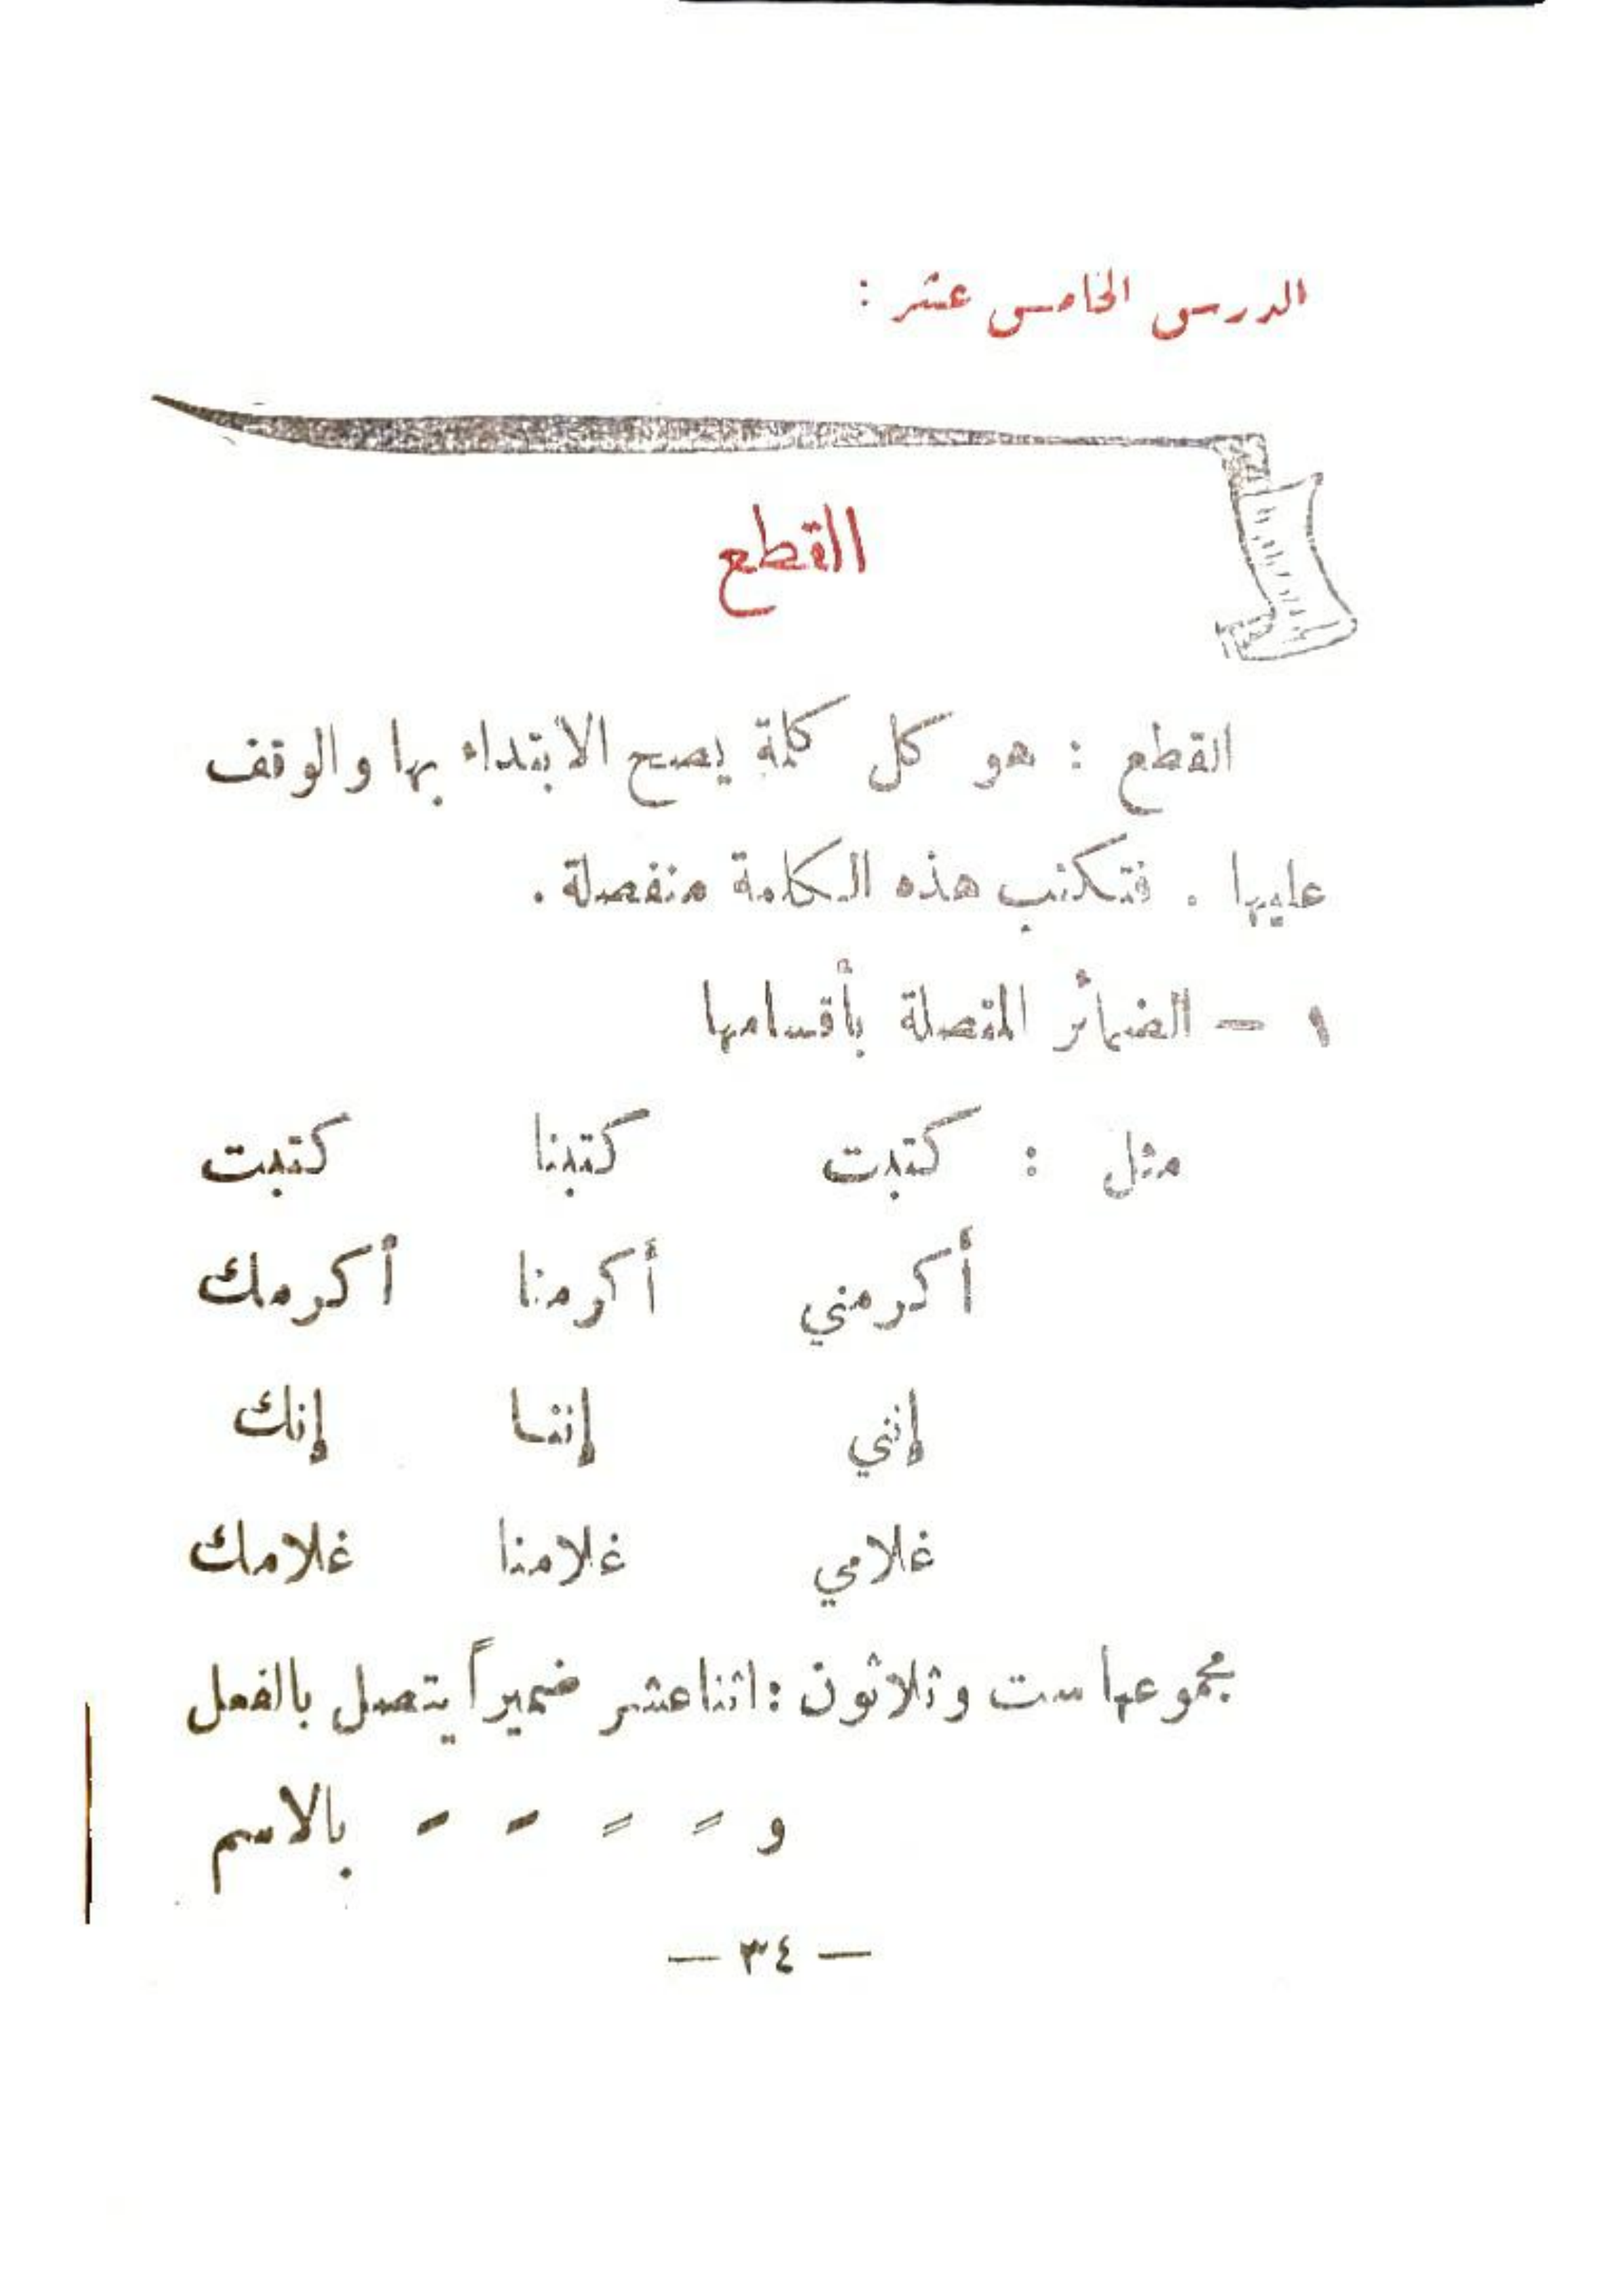 الدرس الخامس عشر :
القطع
القطع : هو كل كلمة يصح الابتداء بها والوقف
عليها . فتكتب هذه الكلمة منفصلة .
١ - الضمائر المتصلة بأقسامها
مثل : كتبت كتبنا كتبت
أكرمني أكرمنا أكرمك
إنني إننا إنك
غلامي غلامنا غلامك
مجموعها ست وثلاثون : اثنا عشر ضميراً يتصل بالفعل
و = = - - بالاسم
— ٣٤ —